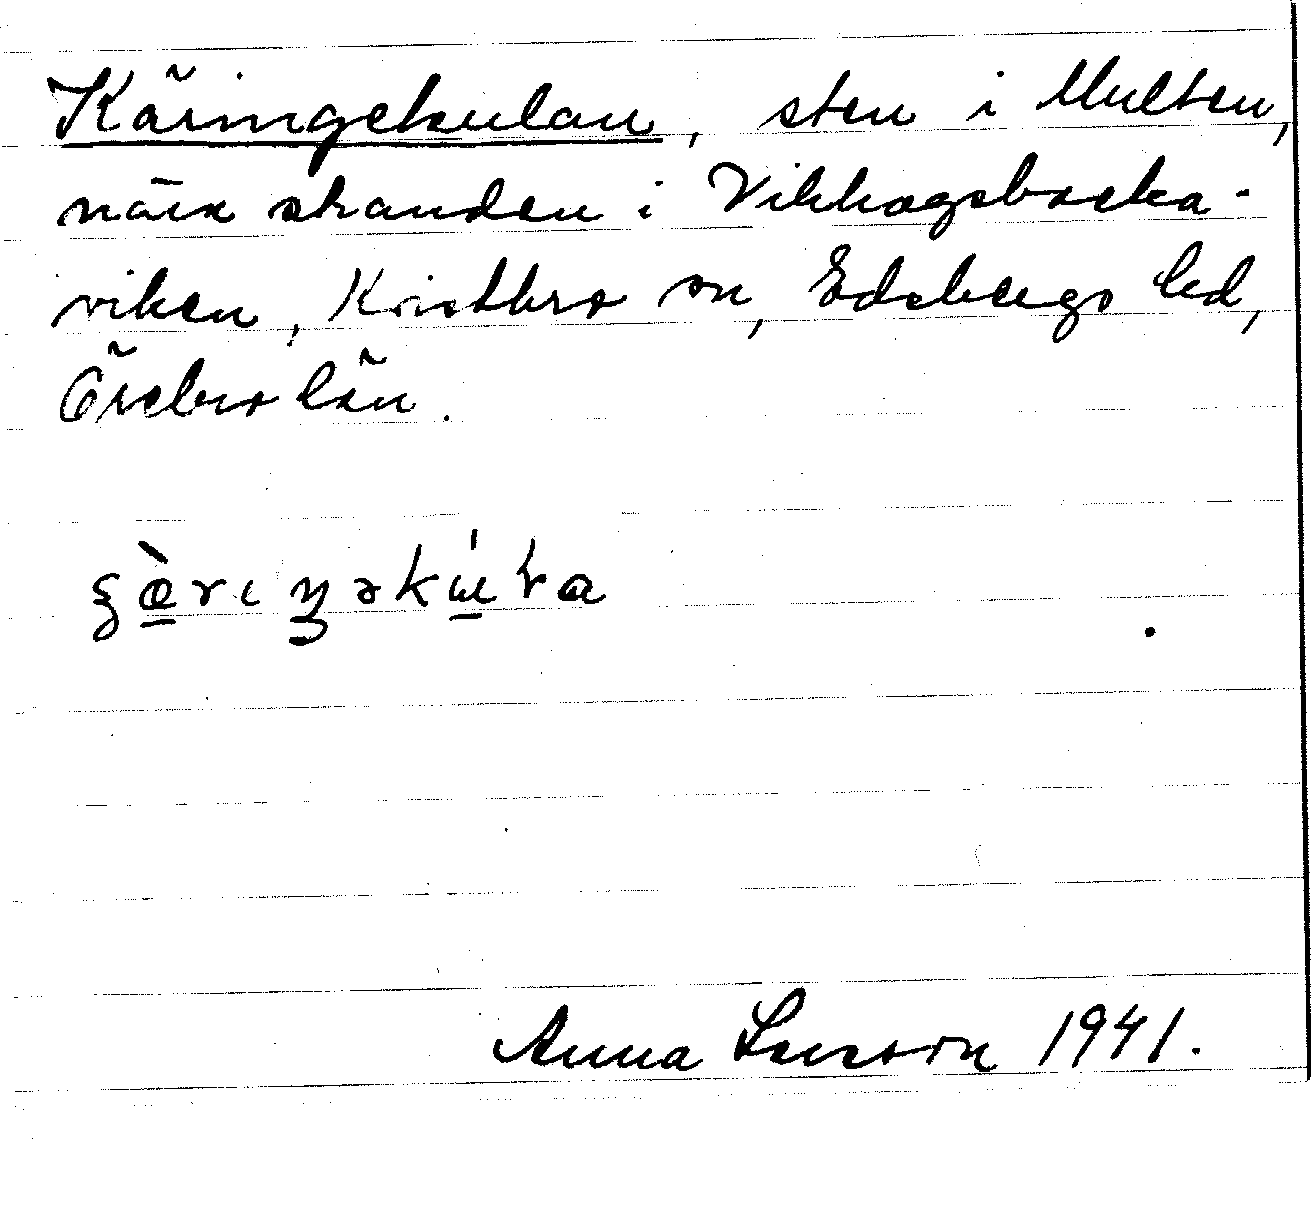 Käringekulan, sten i Multen,
nära stranden i Vikhagsbacka-
viken, Kvistbro sn, Edsbergs hd,
Örebro län.
Anna Larsson 1941.